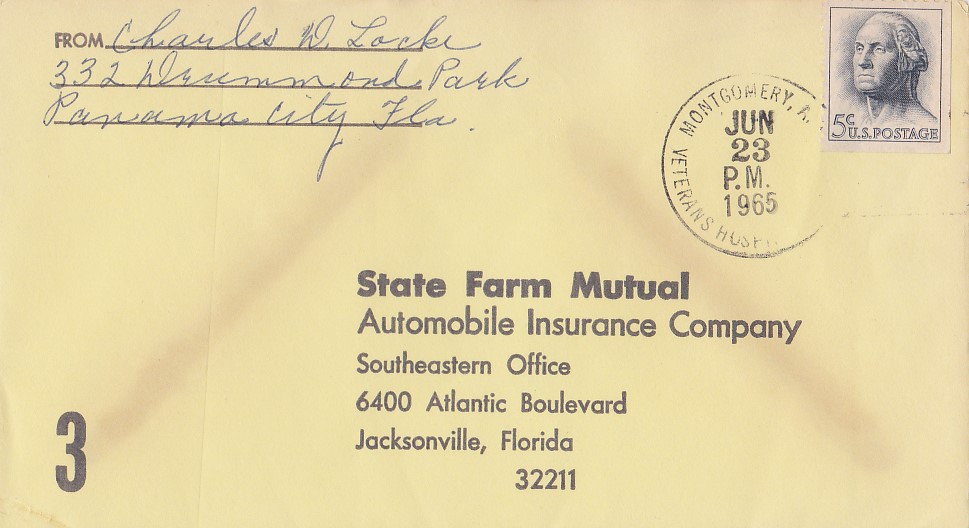 FROM Charles D. Locke
332 Drummond Park
Panama City Fla.
MONTGOMERY, A
JUN
23
P.M.
1965
VETERANS HOSP
5c U.S. POSTAGE
State Farm Mutual
Automobile Insurance Company
Southeastern Office
6400 Atlantic Boulevard
Jacksonville, Florida
32211
3